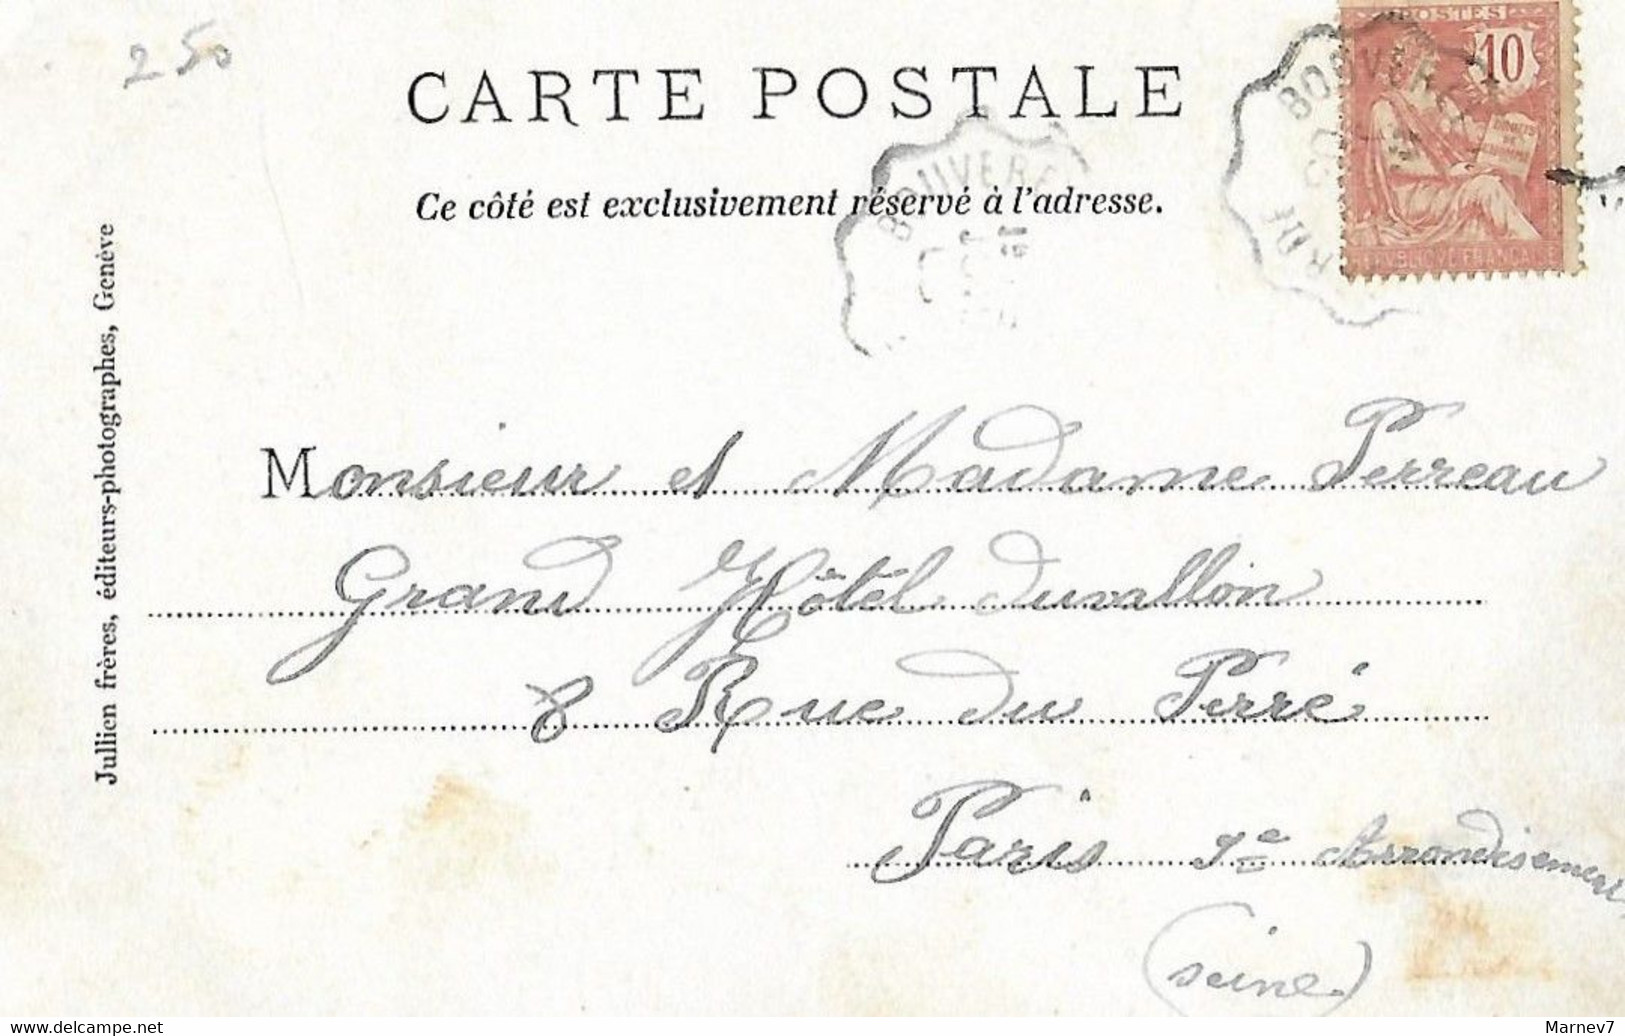 2 50
CARTE POSTALE
Ce côté est exclusivement réservé à l'adresse.
POSTES
10
BOUVERE
BOUVERE
Jullien frères, éditeurs-photographes, Genève
Monsieur et Madame Perreau
Grand Hôtel Duvallon
8 Rue du Perré
Paris Arrondisement
(Seine)
delcampe.net
Marnev7